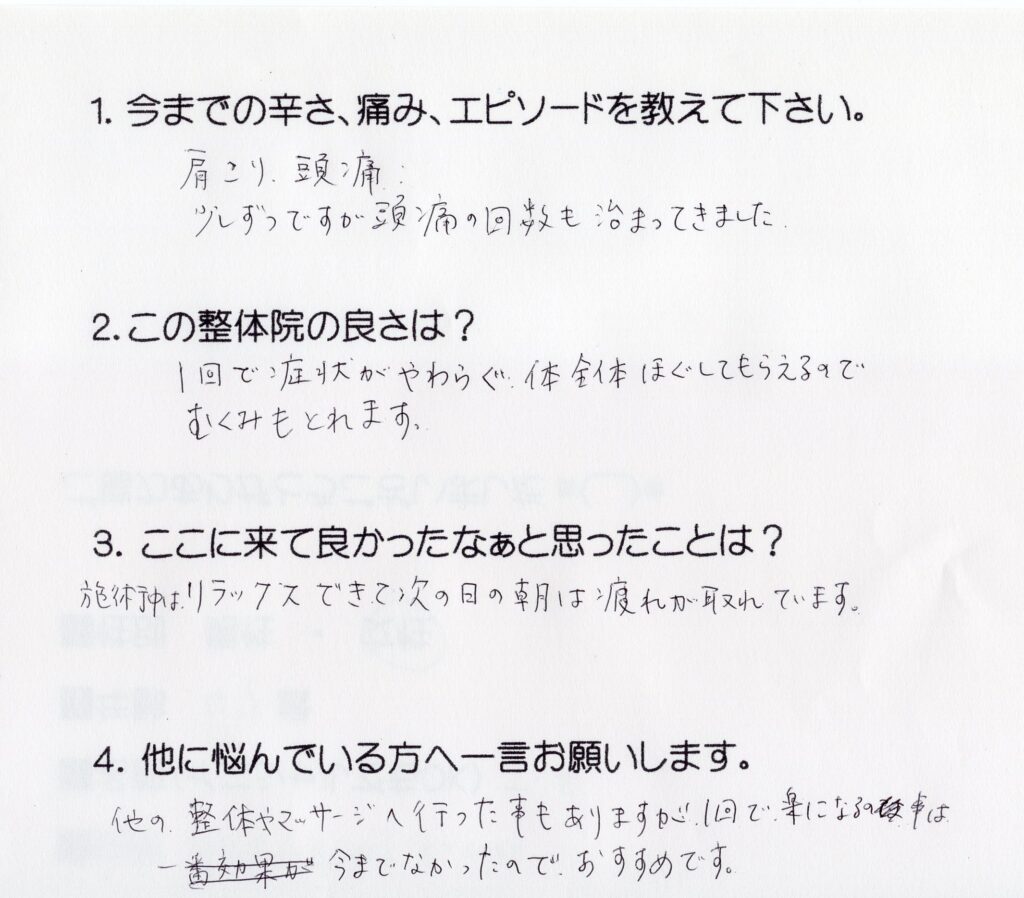 1. 今までの辛さ、痛み、エピソードを教えて下さい。
肩こり、頭痛.
少しずつですが頭痛の回数も治まってきました.
2.この整体院の良さは？
1回で症状がやわらぐ.体全体ほぐしてもらえるので
むくみもとれます。
3. ここに来て良かったなぁと思ったことは？
施術中は、リラックスできて次の日の朝は疲れが取れています。
4. 他に悩んでいる方へ一言お願いします。
他の、整体やマッサージへ行った事もありますが、1回で、楽になる事は
一番効果が 今までなかったので、おすすめです。